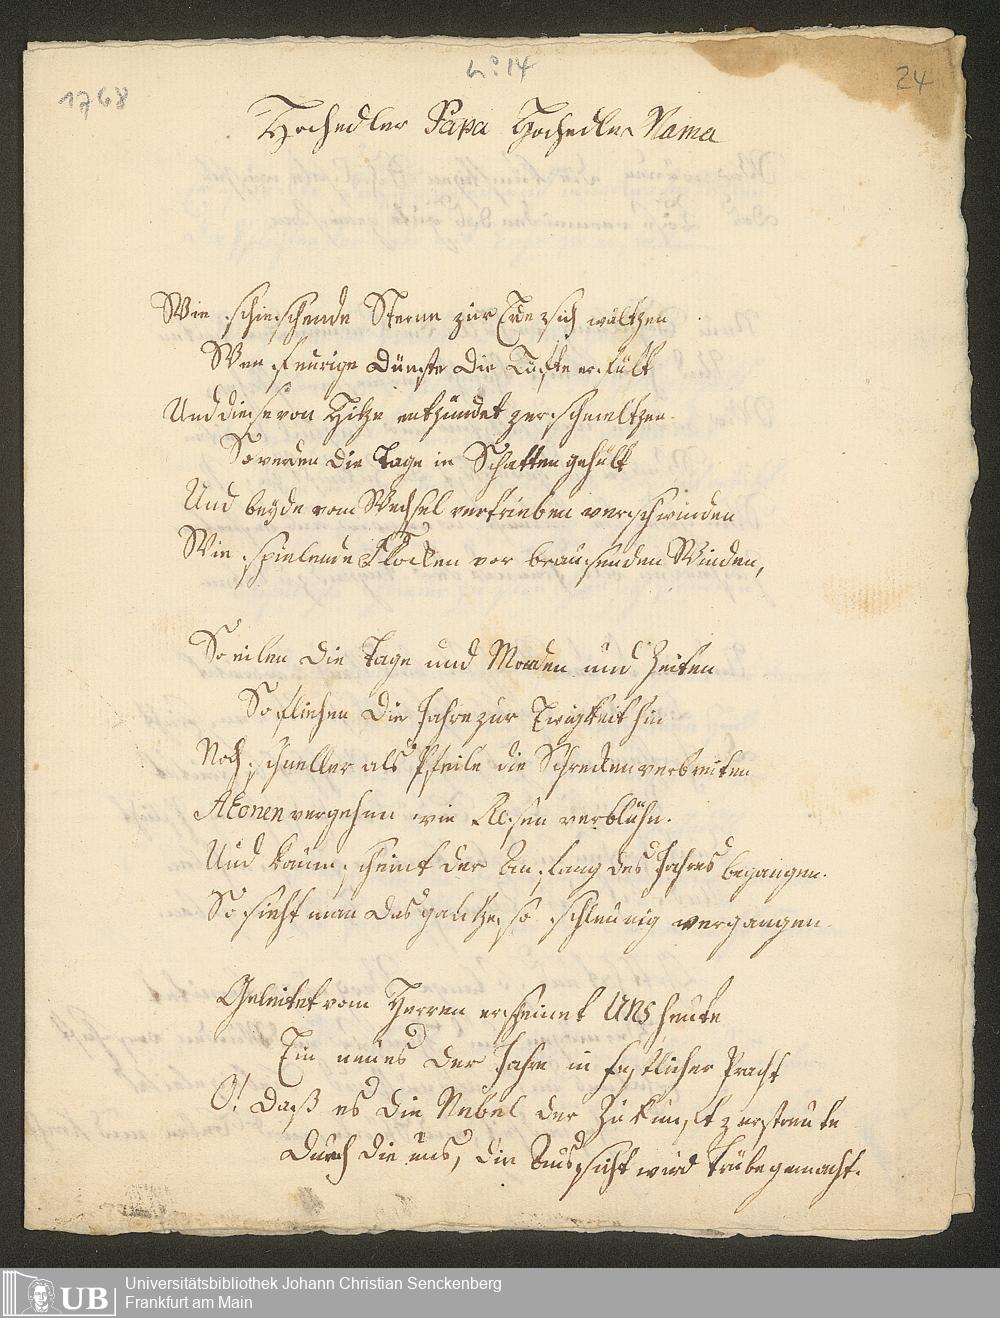 1768
No 14
24
Hochedler Papa Hochedle Mama
Wie schieschende Sterne zur Erde sich wältzen
Wen feurige Dünste die Lüfte erfült
Und diese von Hitze entzündet zerschmeltzen.
So werden die Tage in Schatten gehült
Und beyde vom Wechsel vertrieben verschwinden
Wie spielende Flocken vor brausenden Winden,
So eilen die Tage und Monden und Zeiten
So fliehen die Jahre zur Ewigkeit hin
Noch schneller als Pfeile die Schrecken verbreiten
Aeonen vergehen wie Rosen verblühn.
Und kaum scheint der Anfang des Jahres begangen.
So sieht man das gantze so schleunig vergangen.
Geleitet vom Herren erscheinet Uns heute
Ein neues der Jahre in festlicher Pracht
O! daß es die Nebel der Zukunft zerstreute
Durch die uns, die Aussicht wird trübe gemacht.
UB
Universitätsbibliothek Johann Christian Senckenberg
Frankfurt am Main